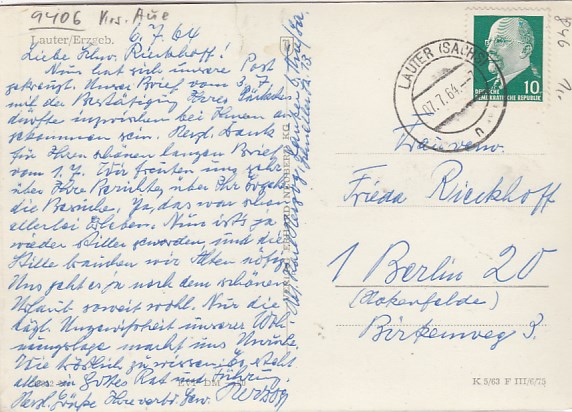 9406 Krs. Aue
Lauter/Erzgeb.
6.7.64
Liebe Frau Rieckhoff!
Nun hat sich unsere Post
gekreuzt. Unser Brief vom 3.7.
mit der Bestätigung Ihres Päckch.
dürfte inzwischen bei Ihnen an
gekommen sein. Herzl. Dank
für Ihren schönen langen Brief
vom 1.7. Wir freuten uns sehr
über Ihre Berichte, über Ihr Ergeh.
die Besuche. Ja, das war schon
allerlei Erleben. Nun ist's ja
wieder stiller geworden, und die
Stille brauchen wir Alten nötig.
Uns geht es ja nach dem schönen
Urlaub soweit wohl. Nur die
tägl. Ungewißheit unserer Woh
nungslage macht uns Unruhe.
Wie tröstlich zu wissen: Es steht
alles in Gottes Rat und Führung.
Herzl. Grüße Ihre verb. Gew. Herzog
LAUTER (SACHS)
07.7.64
n
DEUTSCHE
DEMOKRATISCHE REPUBLIK
10
Frauverw.
Frieda Rieckhoff
1 Berlin 20
(Hakenfelde)
Birkenweg 3.
K 5/63 F III/6/75